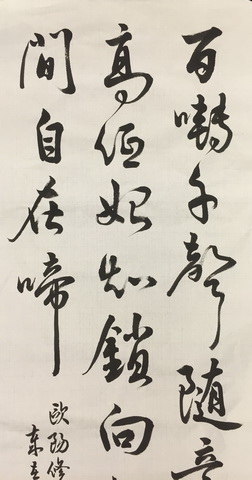 百囀千聲隨意
高低始知鎖向
間自在啼
歐陽修